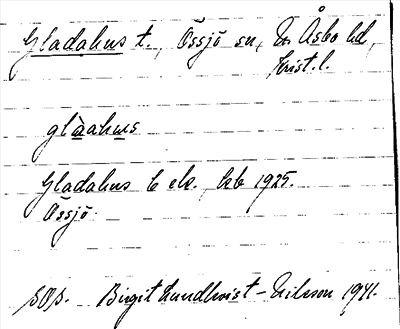 Gladahus t., Össjö sn, N. Åsbo hd,
Krist. l.
glàahus
Gladahus b ek. 1925.
Össjö
SOS. Birgit Lundkvist-Nilsson 1941.